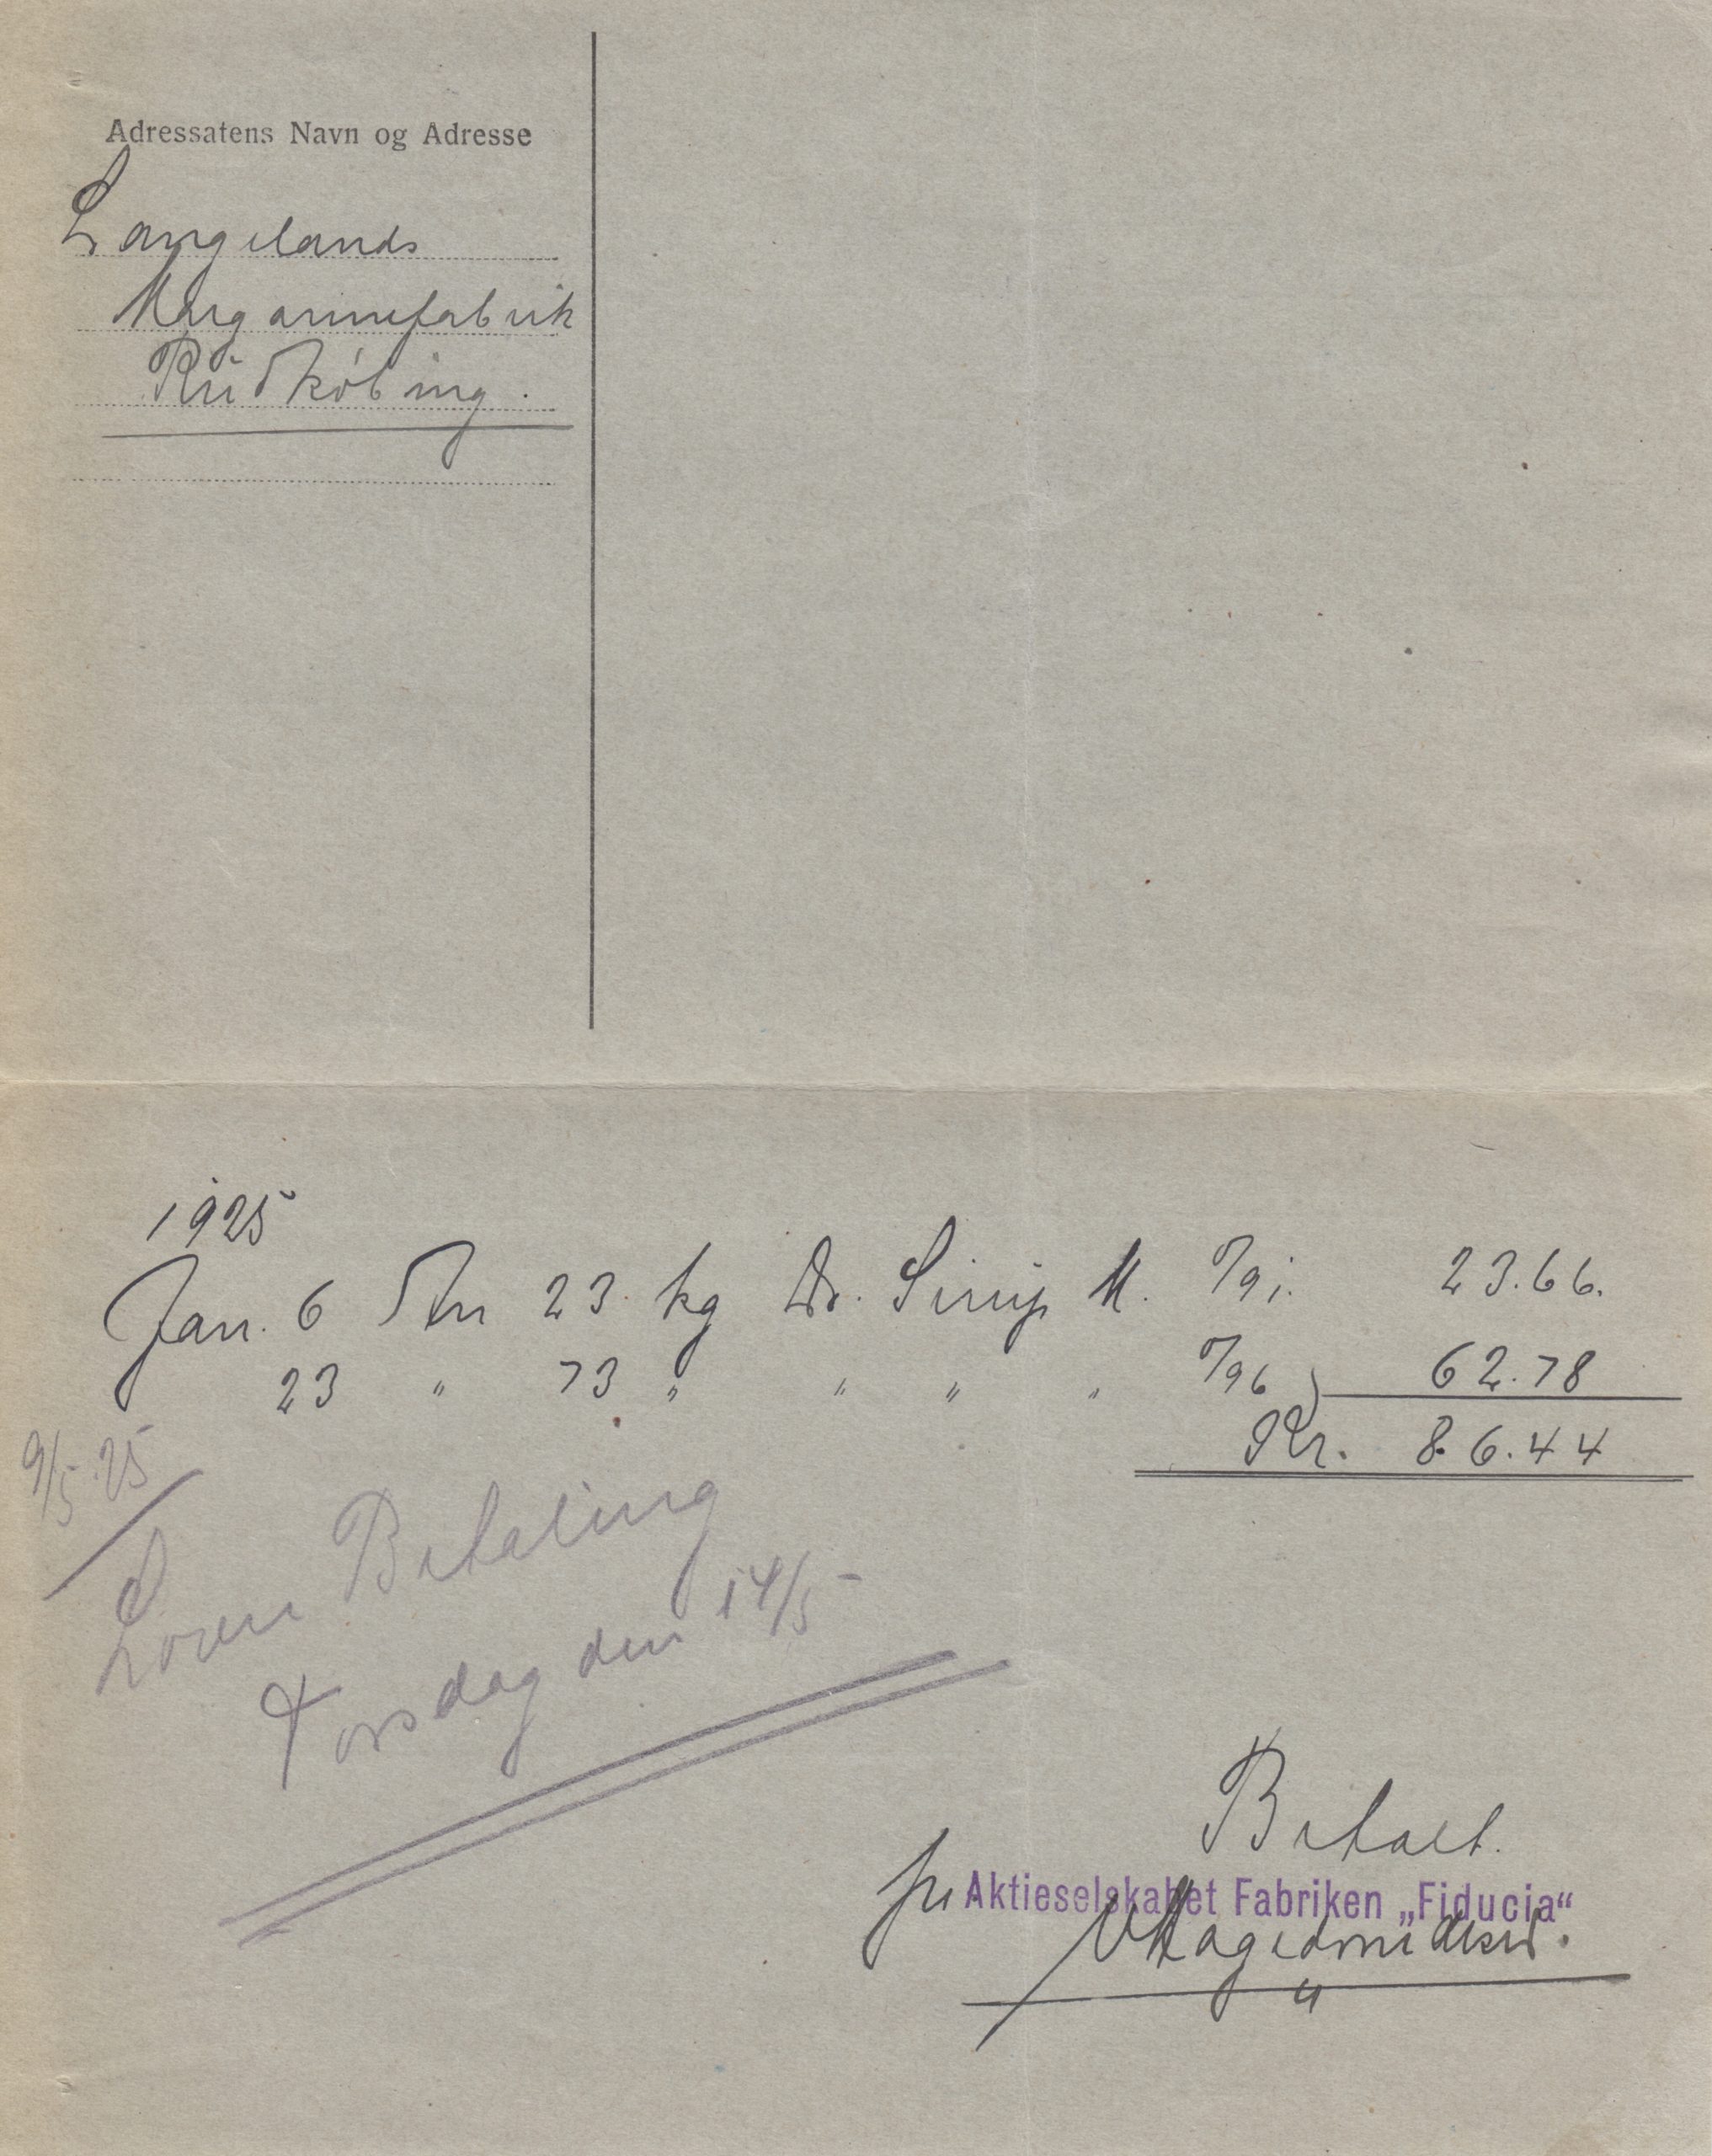 Adressatens Navn og Adresse
Langelands
Margarinefabrik
Rudkøbing.
1925
Jan. 6 An 23 kg Dr. Sirup M. 23.66.
23 " 73 " " " " 62.78
Kr. 86.44
9/5 25
Lover Betaling
Torsdag den 14/5
Betalt.
Aktieselskabet Fabriken „Fiducia“